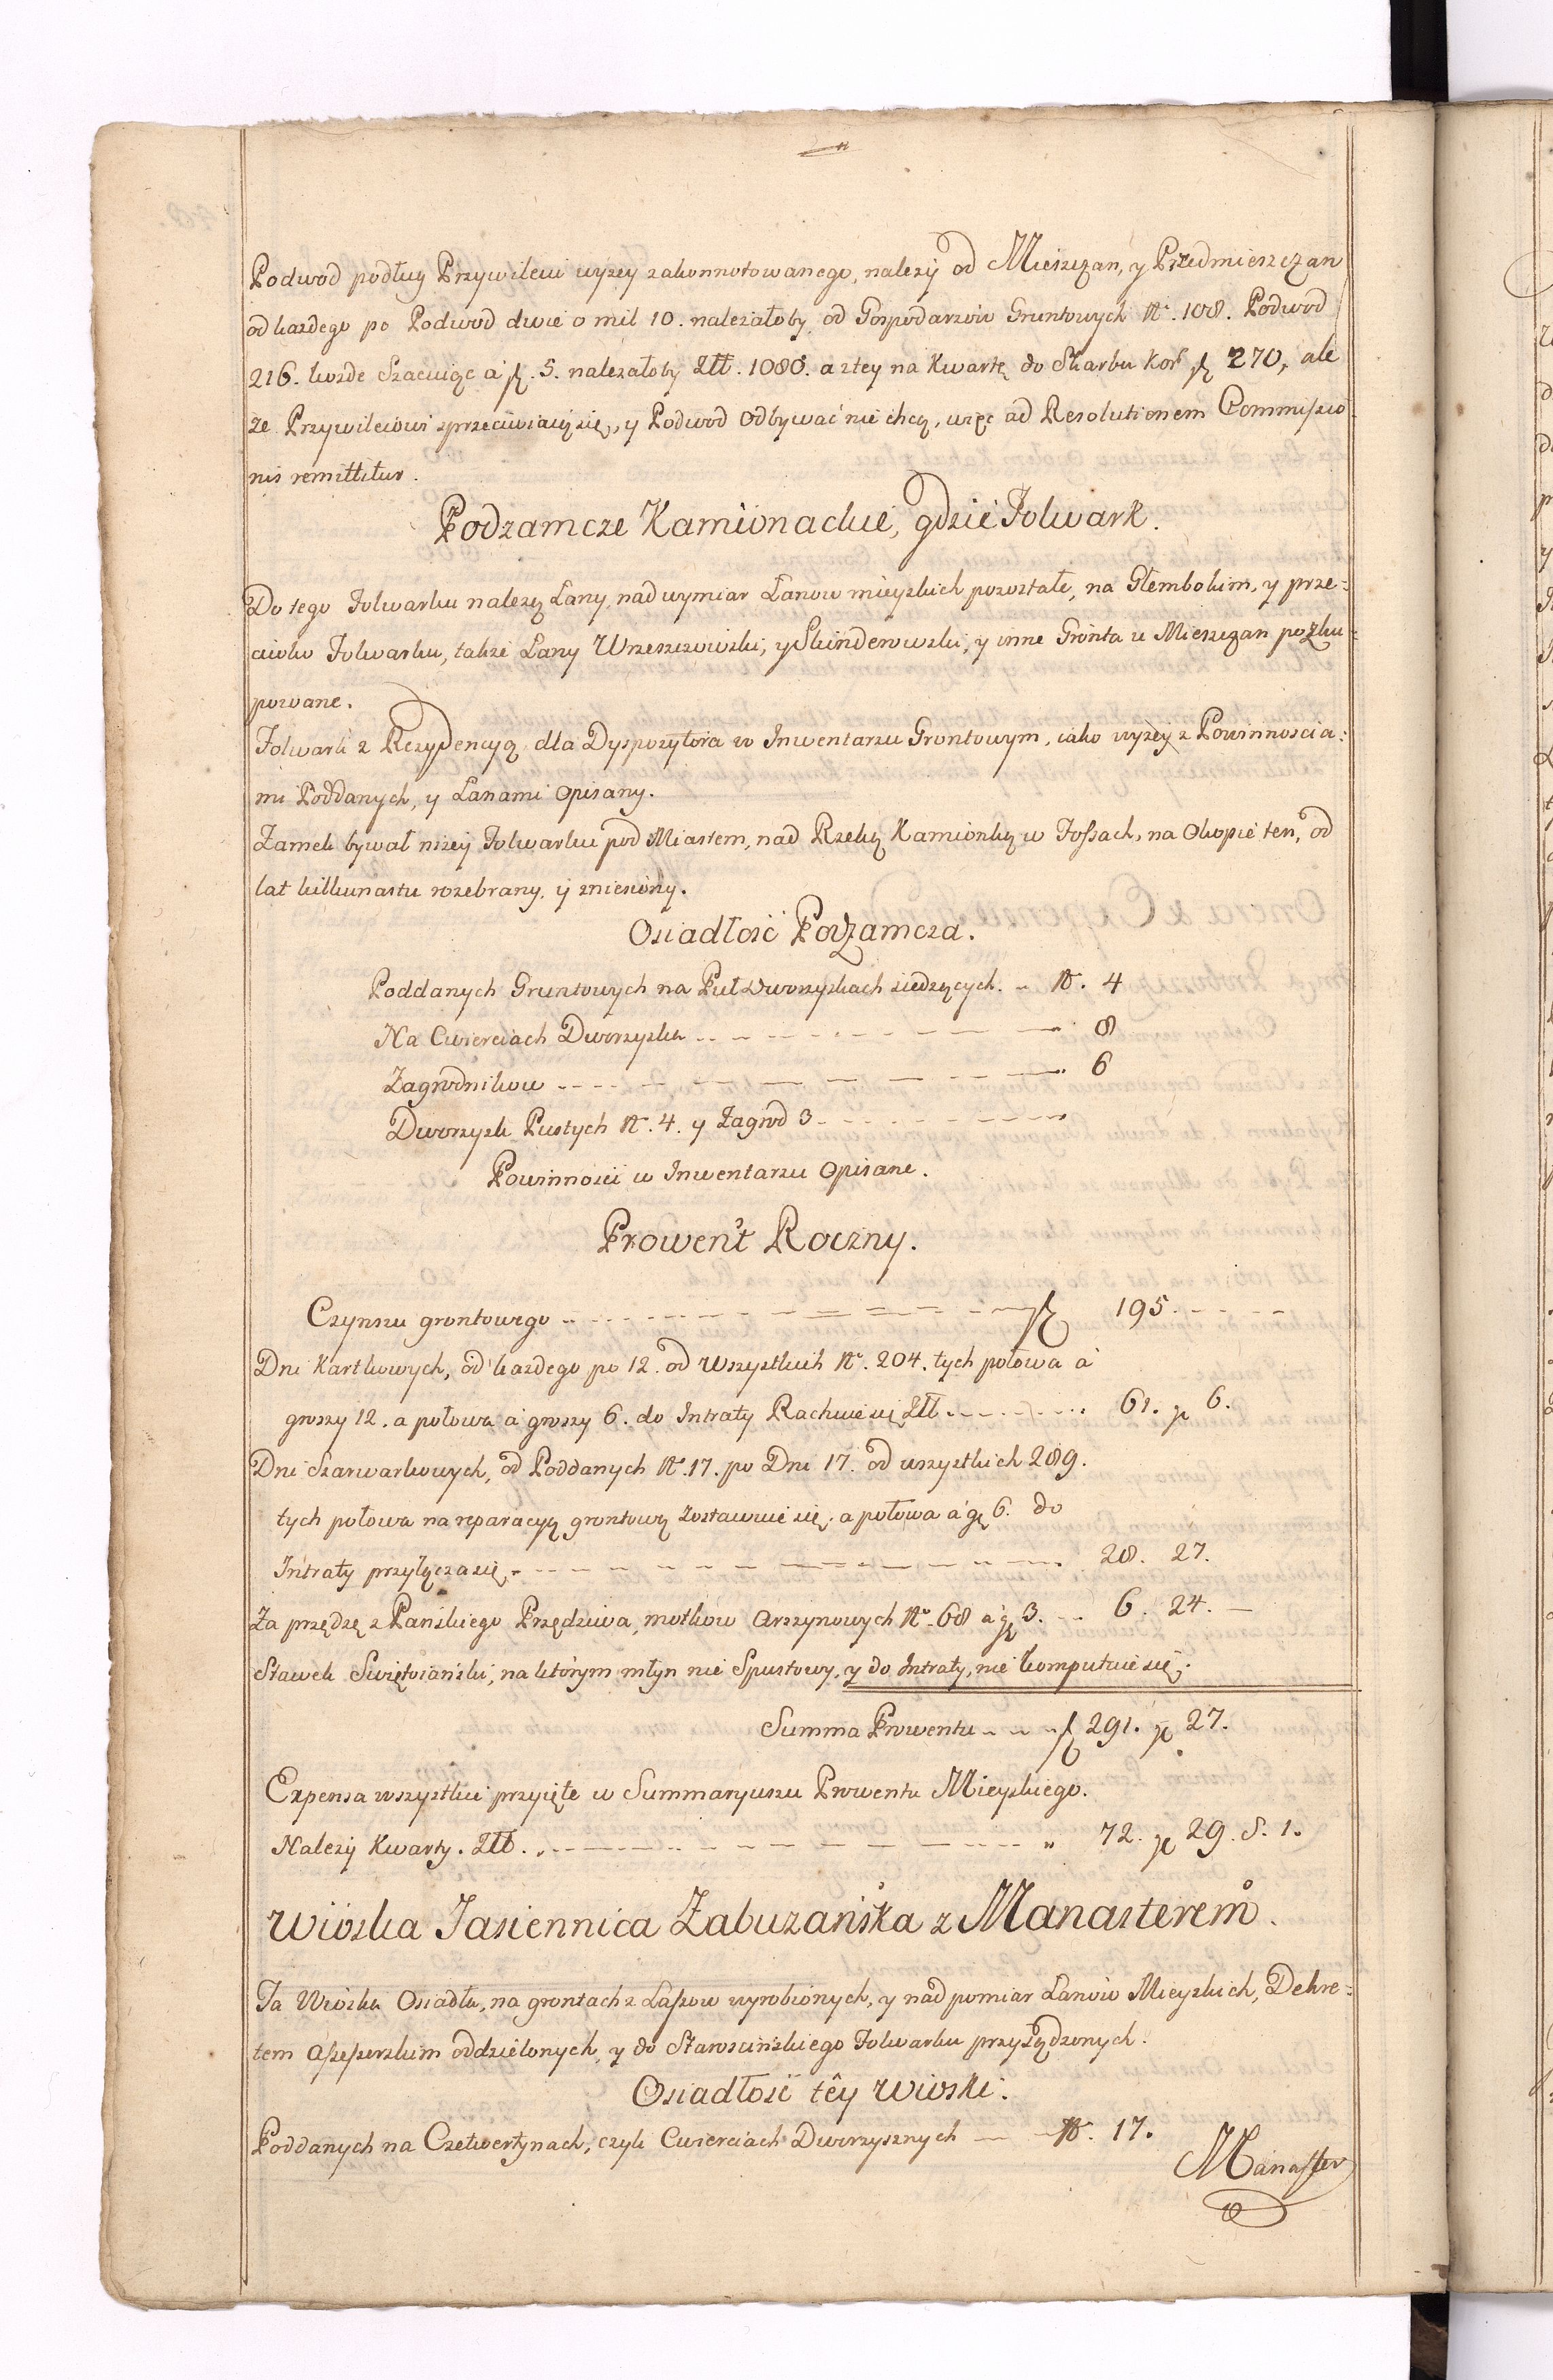 Podwod podług Przywileiu wyzey zakonnotowanego, nalezy od Mieszczan, y Przedmieszczan
od kazdego po Podwod dwie o mil 10. nalezałoby od Gospodarzow Gruntowych N. 108. Podwod
216. kozde Szacuiąc á f. 5. nalezałoby Złł. 1080. a ztey na Kwartę do Skarbu Kor. f 270, ale
ze Przywileiowi zprzeciwiaią się, y Podwod odbywać nie chcą, więc ad Resolutionem Commissio
nis remittitur.
Podzamcze Kamionackie, gdzie Folwark.
Do tego Folwarku nalezą Lany, nad wymiar Lanow mieyskich pozostałe, na Glembokim, y prze=
ciwko Folwarku, takze Lany Wrzeszczowski, y Skinderowski, y inne Gronta u Mieszczan pozku=
powane.
Folwark z Rezydencyą dla Dyspozytora w Inwentarzu Grontowym, iako wyzey z Powinnoscia=
mi Poddanych, y Lanami opisany.
Zamek bywał nizey Folwarku pod Miastem, nad Rzeką Kamionką w Fossach, na Okopie ten, od
lat kilkunastu rozebrany, y zniesiony.
Osiadłość Podzamcza.
Poddanych Gruntowych na Puł Dworzyskach siedzących. N. 4
Na Cwierciach Dworzyska 8
Zagrodnikow 6
Dworzysk Pustych N. 4. y Zagrod 3
Powinnosci w Inwentarzu Opisane.
Prowent Roczny.
Czynszu grontowego f 195.
Dni Kartkowych, od kazdego po 12. od Wszystkich N. 204. tych połowa á
groszy 12. a połowa á groszy 6. do Intraty Rachuie się Złł 61. g 6.
Dni Szarwarkowych, od Poddanych N. 17. po Dni 17. od wszystkich 289.
tych połowa na reparacyą grontową Zostawuie się, a połowa á g 6. do
Intraty przyłącza się 28. 27.
Za przędzę z Pańskiego Przędziwa, motkow Arszynowych N. 68 á g 3. 6. 24.
Stawek Swiętoiański, na ktorym młyn nie Spustowy, y do Intraty, nie komputuie się.
Summa Prowentu f 291. g 27.
Expensa wszystkie przyięte w Summaryuszu Prowentu Mieyskiego.
Nalezy Kwarty. Złł. 72. g 29. S. 1.
Wioska Jasiennica Zabuzańska z Manasterem.
Ta Wioska Osiadła, na grontach z Lassow wyrobionych, y nad pomiar Lanow Mieyskich, Dekre=
tem Assesserskim oddzielonych, y do Staroscińskiego Folwarku przysądzonych.
Osiadłość téy Wioski.
Poddanych na Czetwertynach, czyli Cwierciach Dworzysznych N. 17.
Manaster